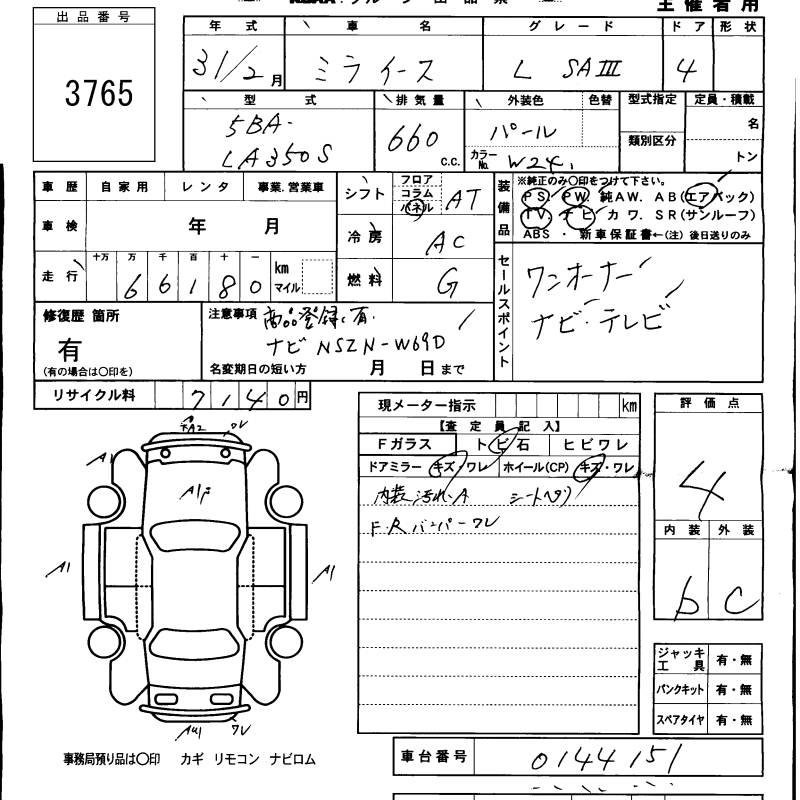 主催者用
出品番号
3765
年式 車名 グレード ドア 形状
31/2月 ミライース L SAIII 4
型式 排気量 外装色 色替 型式指定 定員・積載
5BA-
LA350S
660 c.c.
パール
カラーNo. W24
類別区分
名
トン
車歴 自家用 レンタ 事業.営業車
車検 年 月
走行 十万 万 千 百 十 一
66180 km マイル
シフト フロア コラム パネル AT
冷房 AC
燃料 G
装備品
※純正のみ〇印をつけて下さい。
PS. PW. 純AW. AB(エアバック)
TV. ナビ. カワ. SR(サンルーフ)
ABS ・ 新車保証書←(注) 後日送りのみ
セールスポイント
ワンオーナー
ナビ・テレビ
修復歴 箇所
有
(有の場合は〇印を)
注意事項 商品登録有.
ナビ NSZN-W69D
名変期日の短い方 月 日まで
リサイクル料 7140円
現メーター指示 km
【査定員記入】
Fガラス トビ石 ヒビワレ
ドアミラー キズ・ワレ ホイール(CP) キズ・ワレ
内装汚れA シートヘリ
F.Rバンパーワレ
評価点
4
内装 外装
b C
ジャッキ工具 有・無
パンクキット 有・無
スペアタイヤ 有・無
A2 ワレ
A1
A1
A1
ワレ
事務局預り品は〇印 カギ リモコン ナビロム
車台番号 0144151